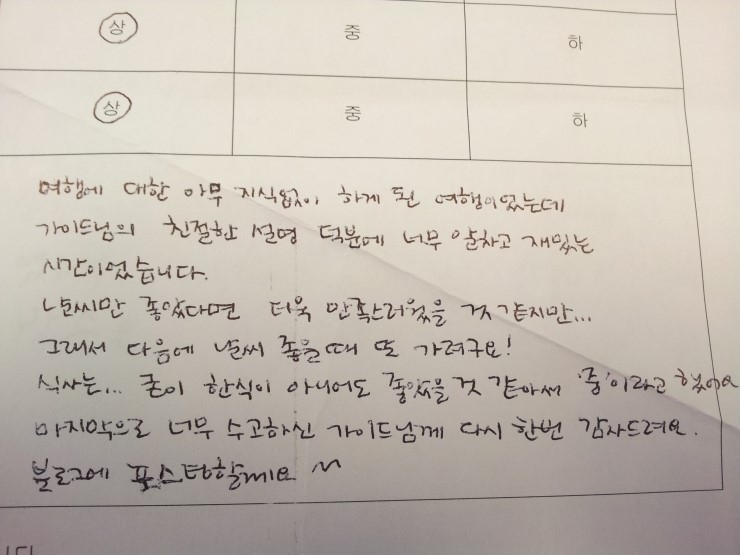 상 중 하
상 중 하
여행에 대한 아무 지식없이 하게 된 여행이었는데
가이드님의 친절한 설명 덕분에 너무 알차고 재밌는
시간이었습니다.
날씨만 좋았다면 더욱 만족스러웠을 것 같지만...
그래서 다음에 날씨 좋을때 또 가려구요!
식사는... 굳이 한식이 아니어도 좋았을것 같아서 '중'이라고 했어요
마지막으로 너무 수고하신 가이드님께 다시 한번 감사드려요.
블로그에 포스터할께요
니다